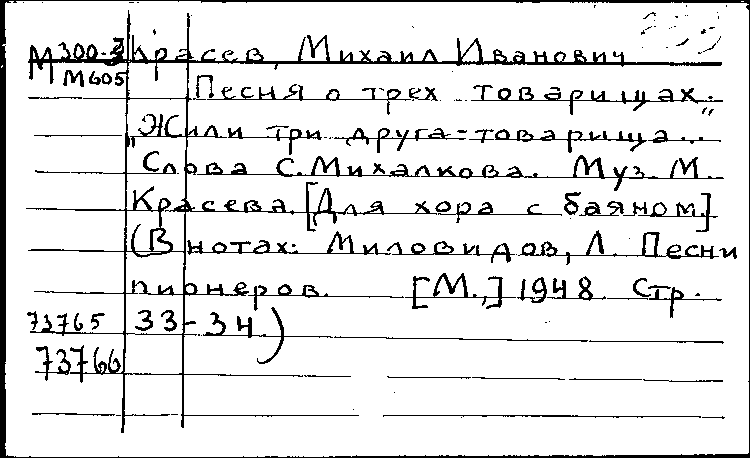 М300-3 Красев, Михаил Иванович
М605 Песня о трех товарищах.
"Жили три друга-товарища..."
Слова С. Михалкова. Муз. М.
Красева. [Для хора с баяном.]
(В нотах: Миловидов, Л. Песни
пионеров. [М.,] 1948. Стр.
73765 33-34.)
73766